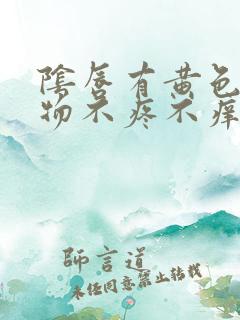 陰唇有黄色
物不疼不痒
師言道
未经同意禁止转载